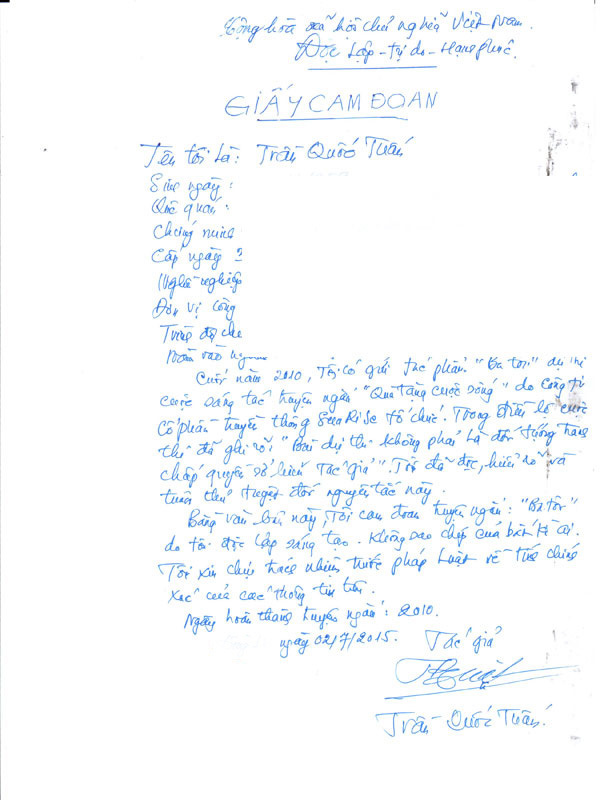 Cộng hoà xã hội chủ nghĩa Việt Nam
Độc lập - tự do - Hạnh phúc.
GIẤY CAM ĐOAN
Tên tôi là: Trần Quốc Tuấn
Sinh ngày:
Quê quán:
Chứng minh
Cấp ngày
Nghề nghiệp
Đơn vị công
Trình độ
vào
Cuối năm 2010, Tôi có gửi tác phẩm "Ba tôi" dự thi
cuộc sáng tác truyện ngắn "Quà tặng cuộc sống" do Công ti
cổ phần truyền thông SunRise tổ chức. Trong điều lệ cuộc
thi đã ghi rõ: "Bài dự thi không phải là đối tượng tranh
chấp quyền sở hữu tác giả". Tôi đã đọc, hiểu rõ và
tuân thủ tuyệt đối nguyên tắc này.
Bằng văn bản này, Tôi cam đoan truyện ngắn: "Ba tôi"
do tôi độc lập sáng tạo. Không sao chép của bất kì ai.
Tôi xin chịu trách nhiệm trước pháp luật về tính chính
xác của các thông tin trên.
Ngày hoàn thành truyện ngắn: 2010.
ngày 02/7/2015. Tác giả
Trần Quốc Tuấn.